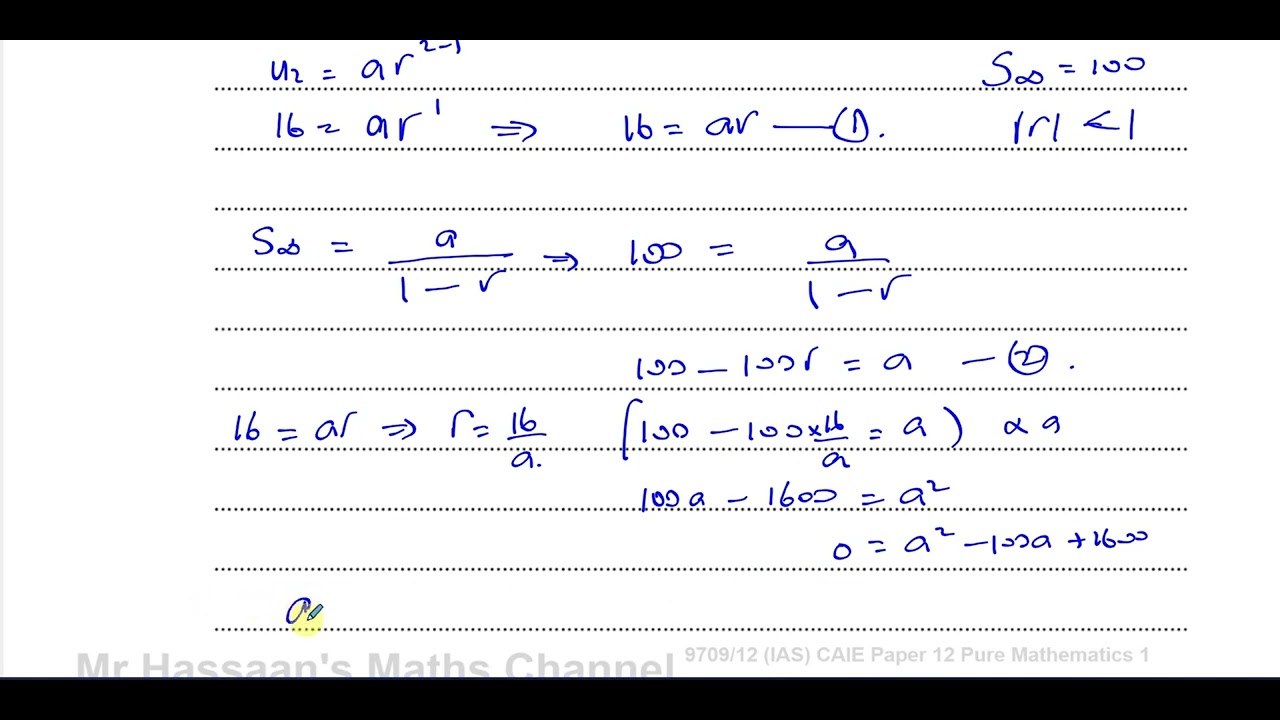 u₂ = ar²⁻¹ S∞ = 100
16 = ar¹ ⇒ 16 = ar —①. |r| < 1
S∞ = a/(1 − r) ⇒ 100 = a/(1 − r)
100 − 100r = a —②.
16 = ar ⇒ r = 16/a. (100 − 100×16/a = a) × a
100a − 1600 = a²
0 = a² − 100a + 1600
a
Mr Hassaan's Maths Channel 9709/12 (IAS) CAIE Paper 12 Pure Mathematics 1